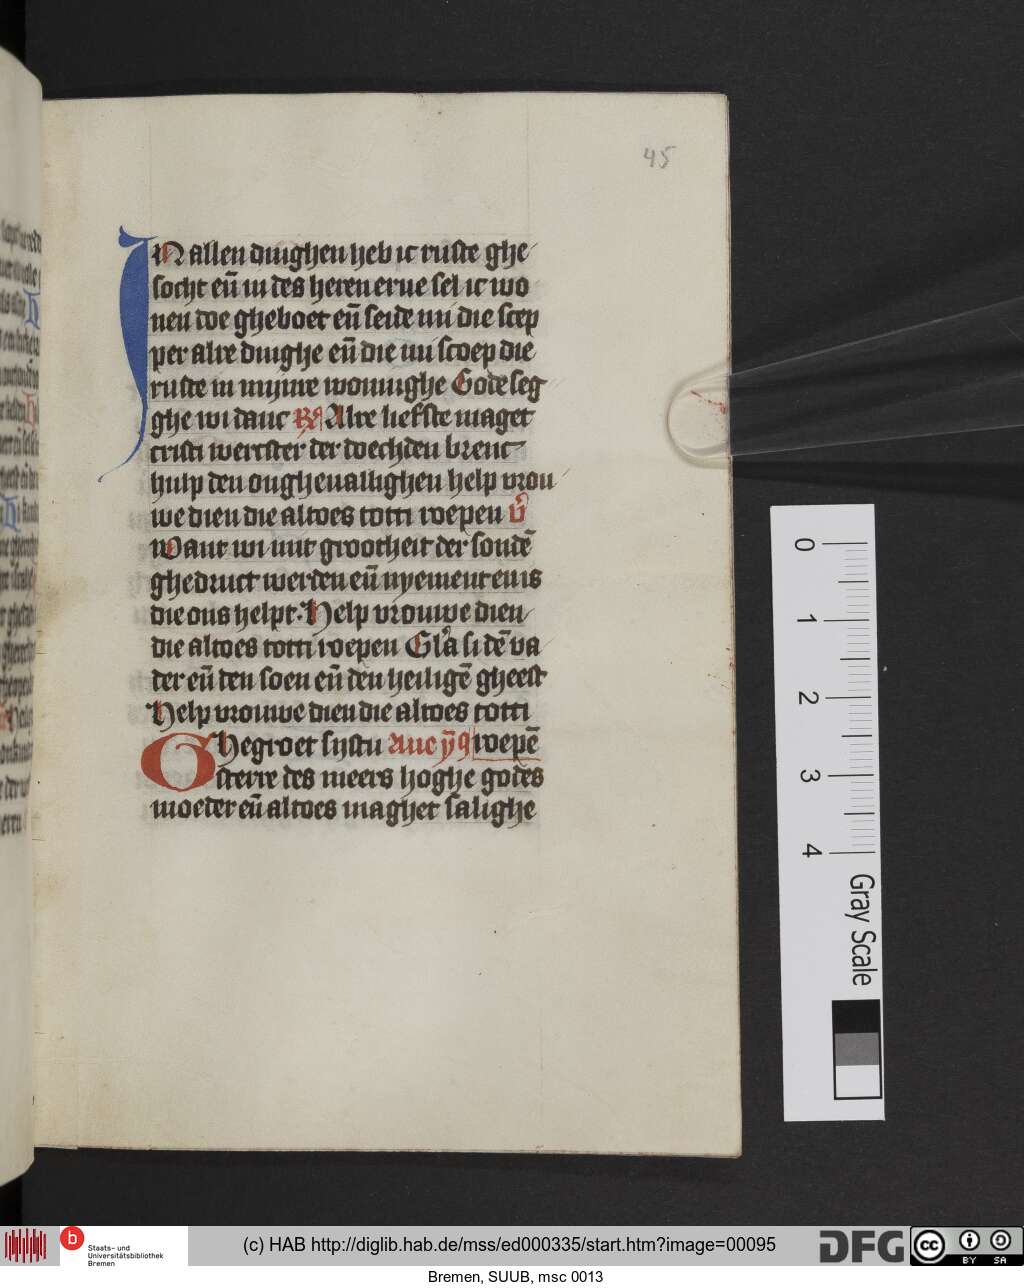 45
IN allen dinghen heb ic ruste ghe
socht eñ in des heren erue sel ic wo
nen doe gheboet eñ seide mi die scep
per alre dinghe eñ die mi scoep die
ruste in mijnre woninghe Gode seg
ghe wi danc R Alre liefste maget
cristi wercster der doechden brenc
hulp den ongheuallighen help vrou
we dien die altoes totti roepen v̄
Want wi mit grootheit der sondē
ghedruct werden eñ nyement en is
die ons helpt. Help vrouwe dien
die altoes totti roepen Gla si dē va
der eñ den soen eñ den heiligē gheest
Help vrouwe dien die altoes totti
Ghegroet sijstu Aue roepē
sterre des meers hoghe godes
moeder eñ altoes maghet salighe
0
1
2
3
4
Gray Scale
b
Staats- und
Universitätsbibliothek
Bremen
(c) HAB http://diglib.hab.de/mss/ed000335/start.htm?image=00095
DFG
cc
BY SA
Bremen, SUUB, msc 0013